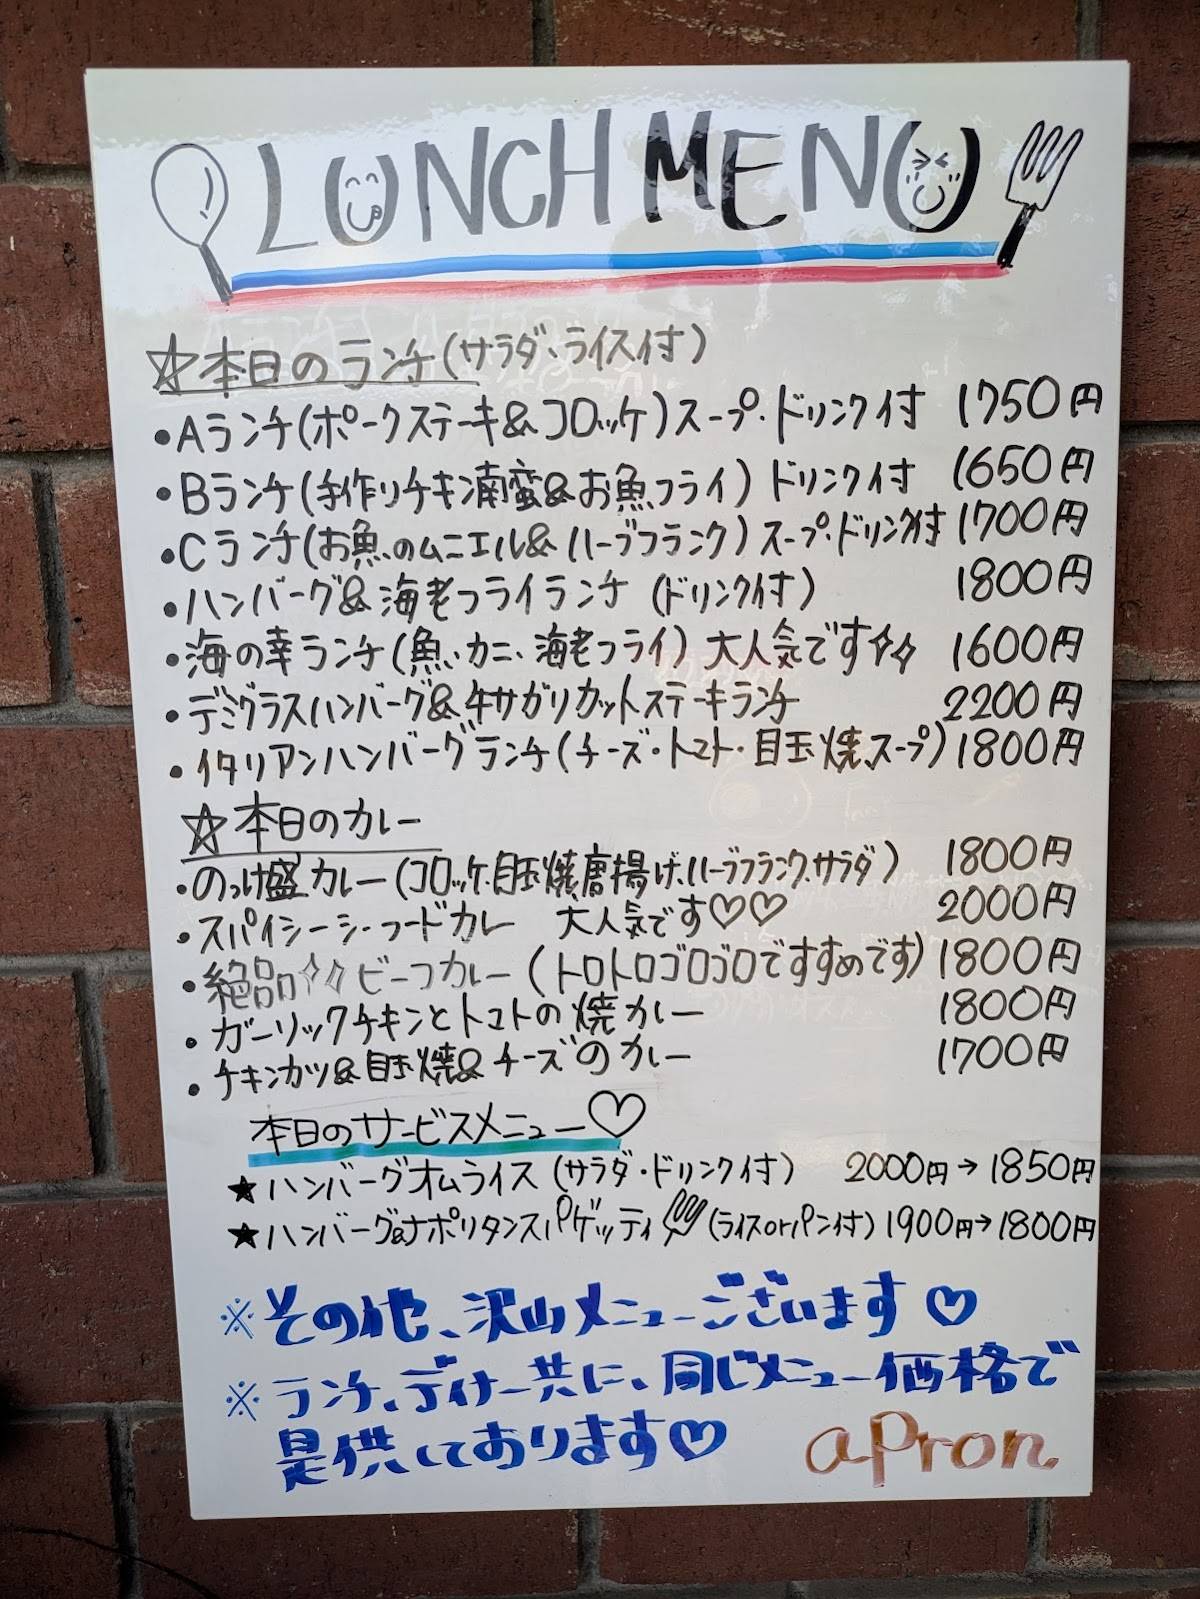 LUNCH MENU
☆本日のランチ(サラダ、ライス付)
・Aランチ(ポークステーキ&コロッケ)スープ・ドリンク付 1750円
・Bランチ(手作りチキン南蛮&お魚フライ)ドリンク付 1650円
・Cランチ(お魚のムニエル&ハーブフランク)スープ・ドリンク付 1700円
・ハンバーグ&海老フライランチ(ドリンク付) 1800円
・海の幸ランチ(魚、カニ、海老フライ)大人気です✧✧ 1600円
・デミグラスハンバーグ&牛サガリカットステーキランチ 2200円
・イタリアンハンバーグランチ(チーズ・トマト・目玉焼、スープ) 1800円
☆本日のカレー
・のっけ盛カレー(コロッケ、目玉焼、唐揚げ、ハーブフランク、サラダ) 1800円
・スパイシーシーフードカレー 大人気です♡♡ 2000円
・絶品✧✧ビーフカレー(トロトロゴロゴロですすめです) 1800円
・ガーリックチキンとトマトの焼カレー 1800円
・チキンカツ&目玉焼&チーズのカレー 1700円
本日のサービスメニュー♡
★ハンバーグオムライス(サラダ・ドリンク付) 2000円→1850円
★ハンバーグ&ナポリタンスパゲッティ(ライスorパン付) 1900円→1800円
※その他、沢山メニューございます♡
※ランチ、ディナー共に、同じメニュー価格で
提供しております♡
apron